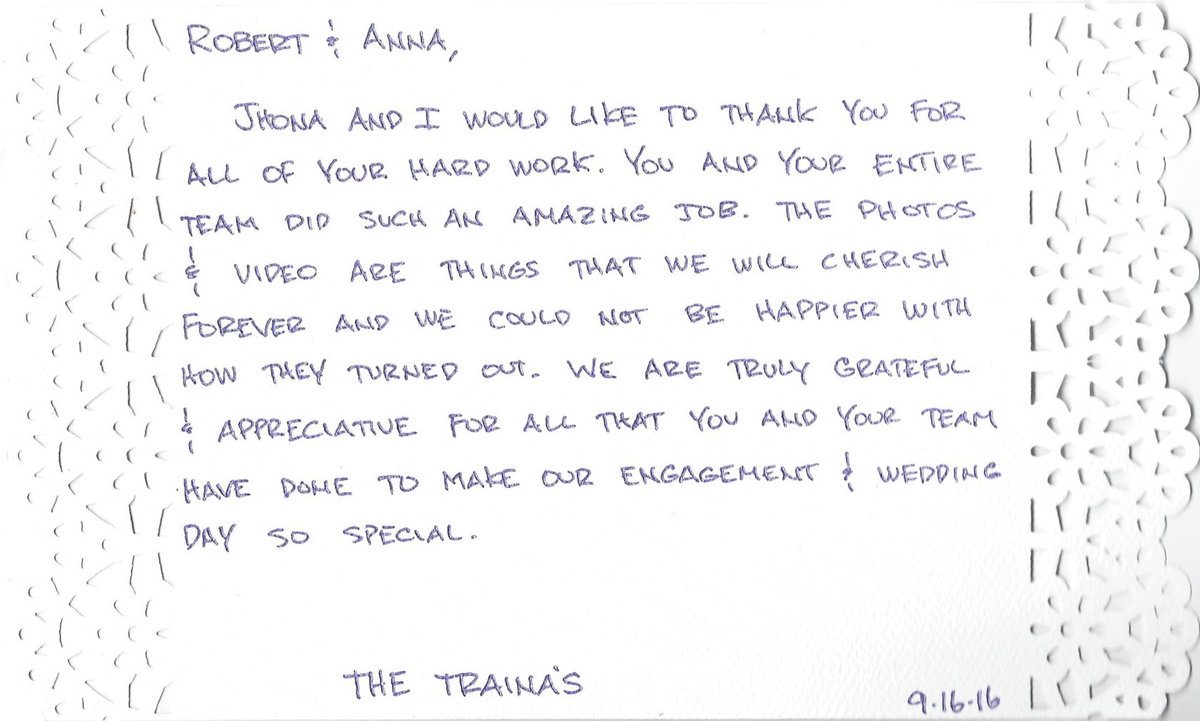 ROBERT & ANNA,
JHONA AND I WOULD LIKE TO THANK YOU FOR
ALL OF YOUR HARD WORK. YOU AND YOUR ENTIRE
TEAM DID SUCH AN AMAZING JOB. THE PHOTOS
& VIDEO ARE THINGS THAT WE WILL CHERISH
FOREVER AND WE COULD NOT BE HAPPIER WITH
HOW THEY TURNED OUT. WE ARE TRULY GRATEFUL
& APPRECIATIVE FOR ALL THAT YOU AND YOUR TEAM
HAVE DONE TO MAKE OUR ENGAGEMENT & WEDDING
DAY SO SPECIAL.
THE TRAINA'S
9.16.16